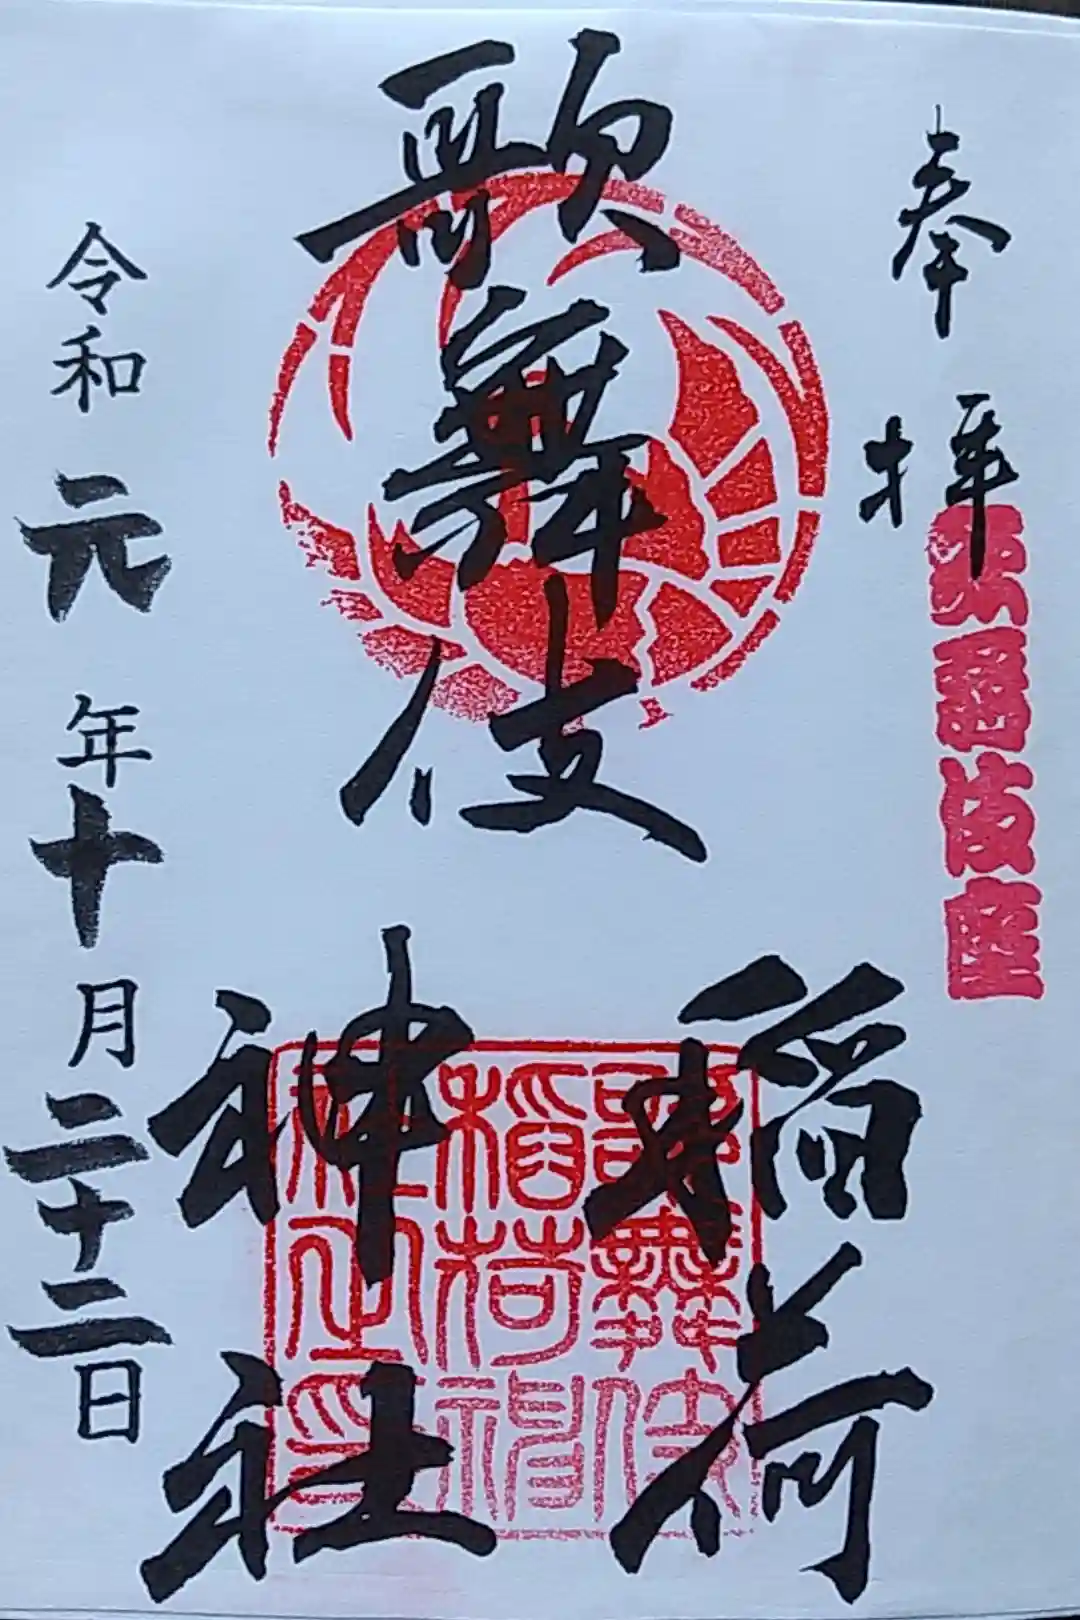 奉拝
歌舞伎座
歌舞伎
稲荷
神社
歌舞伎
稲荷神
社之印
令和元年十月二十二日